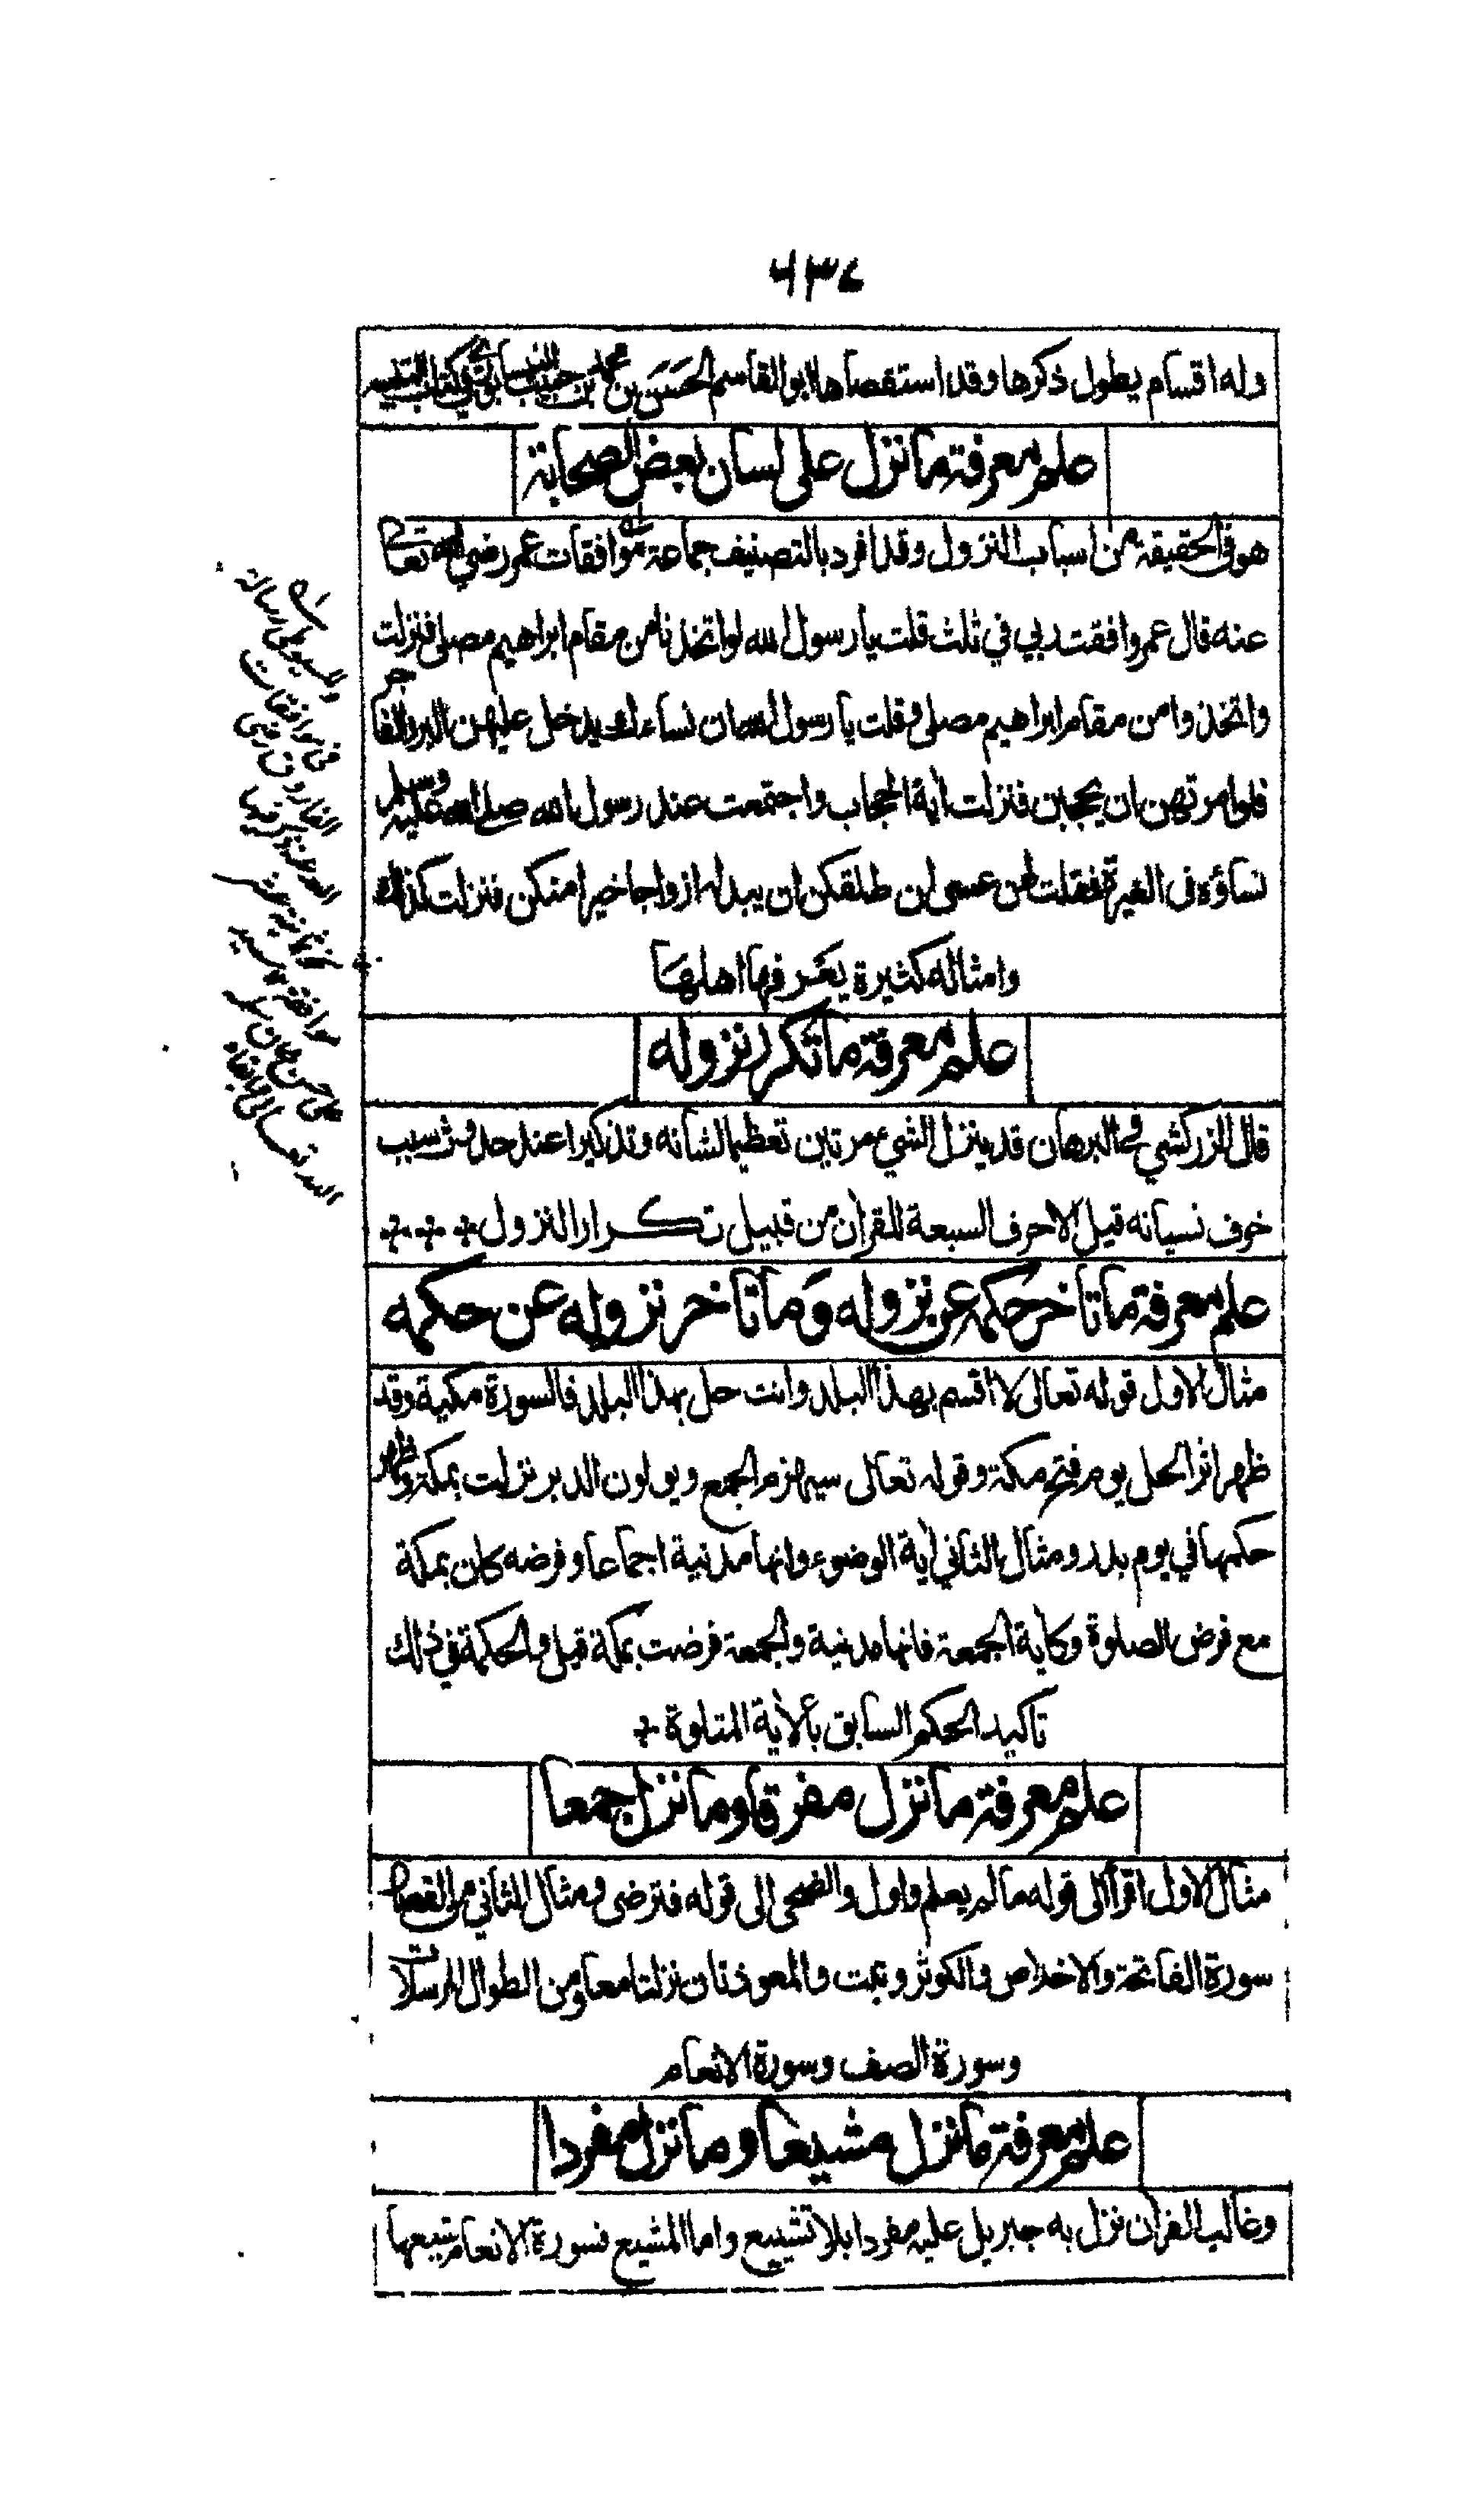 ٦٣٤
وله اقسام يطول ذكرها وقد استقصاها ابو القاسم الحسن بن محمد بن حبيب النيسابوري في كتاب التنبيه
علم معرفة ما نزل على لسان بعض الصحابة
هو في الحقيقة من اسباب النزول وقد افرد بالتصنيف جماعة موافقات عمر رضي الله تعالى
عنه قال عمر وافقت ربي في ثلث قلت يا رسول الله لو اتخذنا من مقام ابراهيم مصلى فنزلت
واتخذوا من مقام ابراهيم مصلى وقلت يا رسول الله ان نساءك يدخل عليهن البر والفاجر
فلو امرتهن ان يحجبن فنزلت آية الحجاب واجتمعت عند رسول الله صلى الله عليه وسلم
نساؤه في الغيرة فقلت لهن عسى ان طلقكن ان يبدله ازواجا خيرا منكن فنزلت كذلك
وامثاله كثيرة يعرفها اهلها
علم معرفة ما تكرر نزوله
قال الزركشي في البرهان قد ينزل الشيء مرتين تعظيما لشانه وتذكيرا عند حدوث سبب
خوف نسيانه قيل الاحرف السبعة للقرآن من قبيل تكرار النزول
علم معرفة ما تاخر حكمه عن نزوله وما تاخر نزوله عن حكمه
مثال الاول قوله تعالى لا اقسم بهذا البلد وانت حل بهذا البلد فالسورة مكية وقد
ظهر اثر الحل يوم فتح مكة وقوله تعالى سيهزم الجمع ويولون الدبر نزلت بمكة وظهر
حكمها في يوم بدر ومثال الثاني آية الوضوء وانها مدنية اجماعا وفرضه كان بمكة
مع فرض الصلوة وكآية الجمعة فانها مدنية والجمعة فرضت بمكة قيل والحكمة في ذلك
تاكيد الحكم السابق بالآية المتلوة
علم معرفة ما نزل مفرقا وما نزل جمعا
مثال الاول اقرأ الى قوله ما لم يعلم واول والضحى الى قوله فترضى ومثال الثاني من القصار
سورة الفاتحة والاخلاص والكوثر وتبت والمعوذتان نزلتا معا ومن الطوال المرسلات
وسورة الصف وسورة الانعام
علم معرفة ما نزل مشيعا وما نزل مفردا
وغالب القرآن نزل به جبريل عليه مفردا بلا تشييع واما المشيع فسورة الانعام شيعها
وللسيوطي رسالة
في موافقات